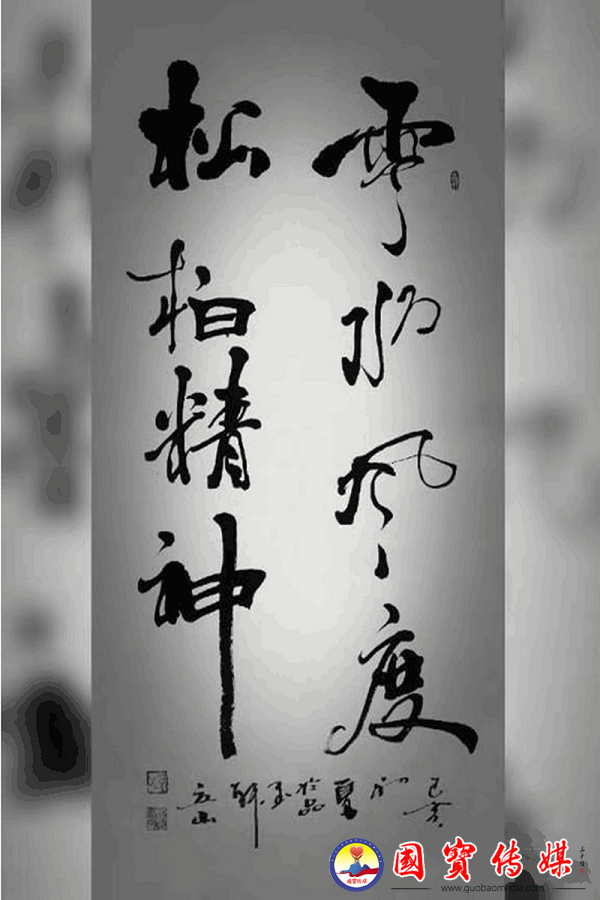 雲水风度
松柏精神
己亥初夏於品玉軒
國寶传媒
www.guobaomedia.com